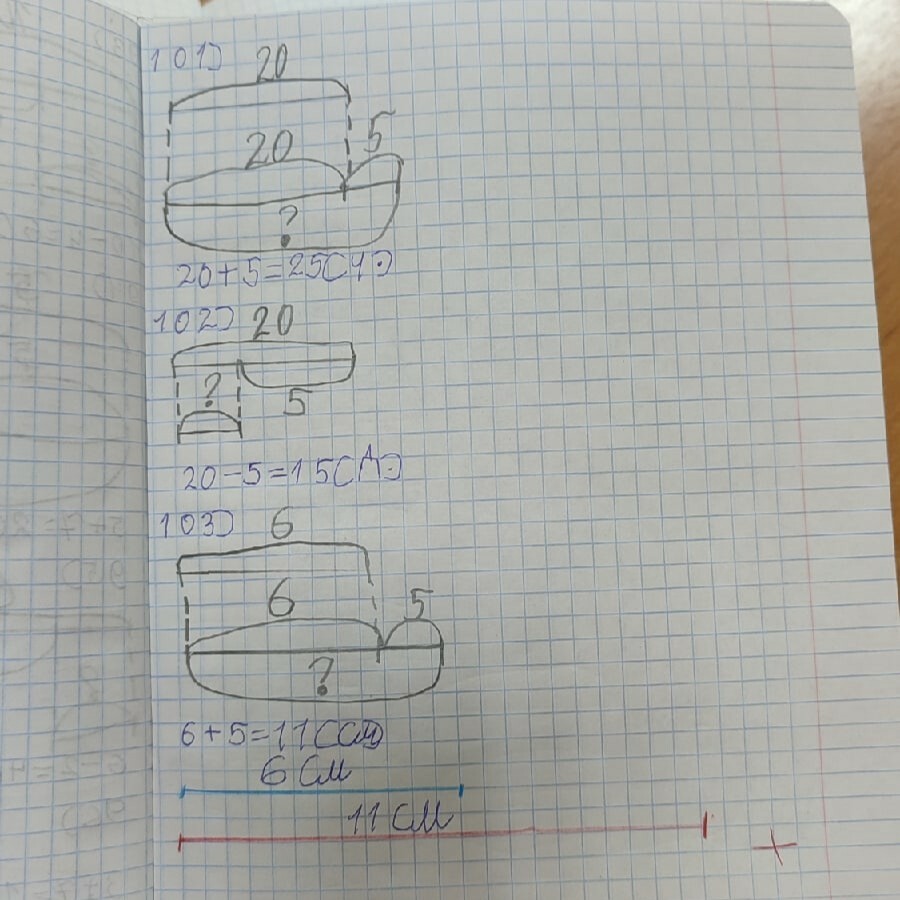 101)
20
20 5
?
20+5=25(ч.)
102)
20
?
5
20-5=15(д.)
103)
6
6 5
?
6+5=11(см)
6 см
11 см
+